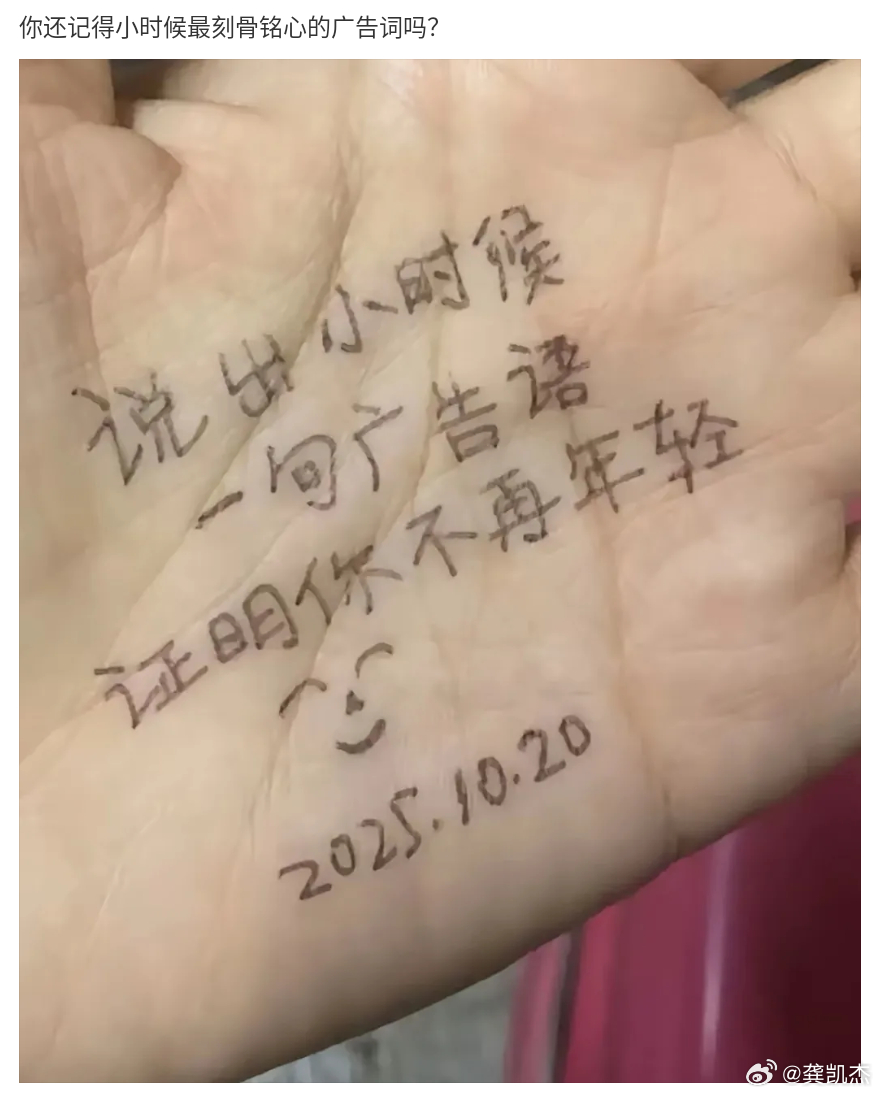 你还记得小时候最刻骨铭心的广告词吗？
说出小时候
一句广告语
证明你不再年轻
2025.10.20
@龚凯杰